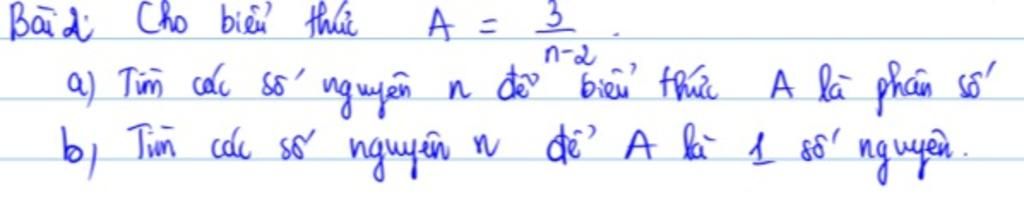 Bài 2: Cho biểu thức A = 3/(n-2).
a) Tìm các số nguyên n để biểu thức A là phân số
b) Tìm các số nguyên n để A là 1 số nguyên.